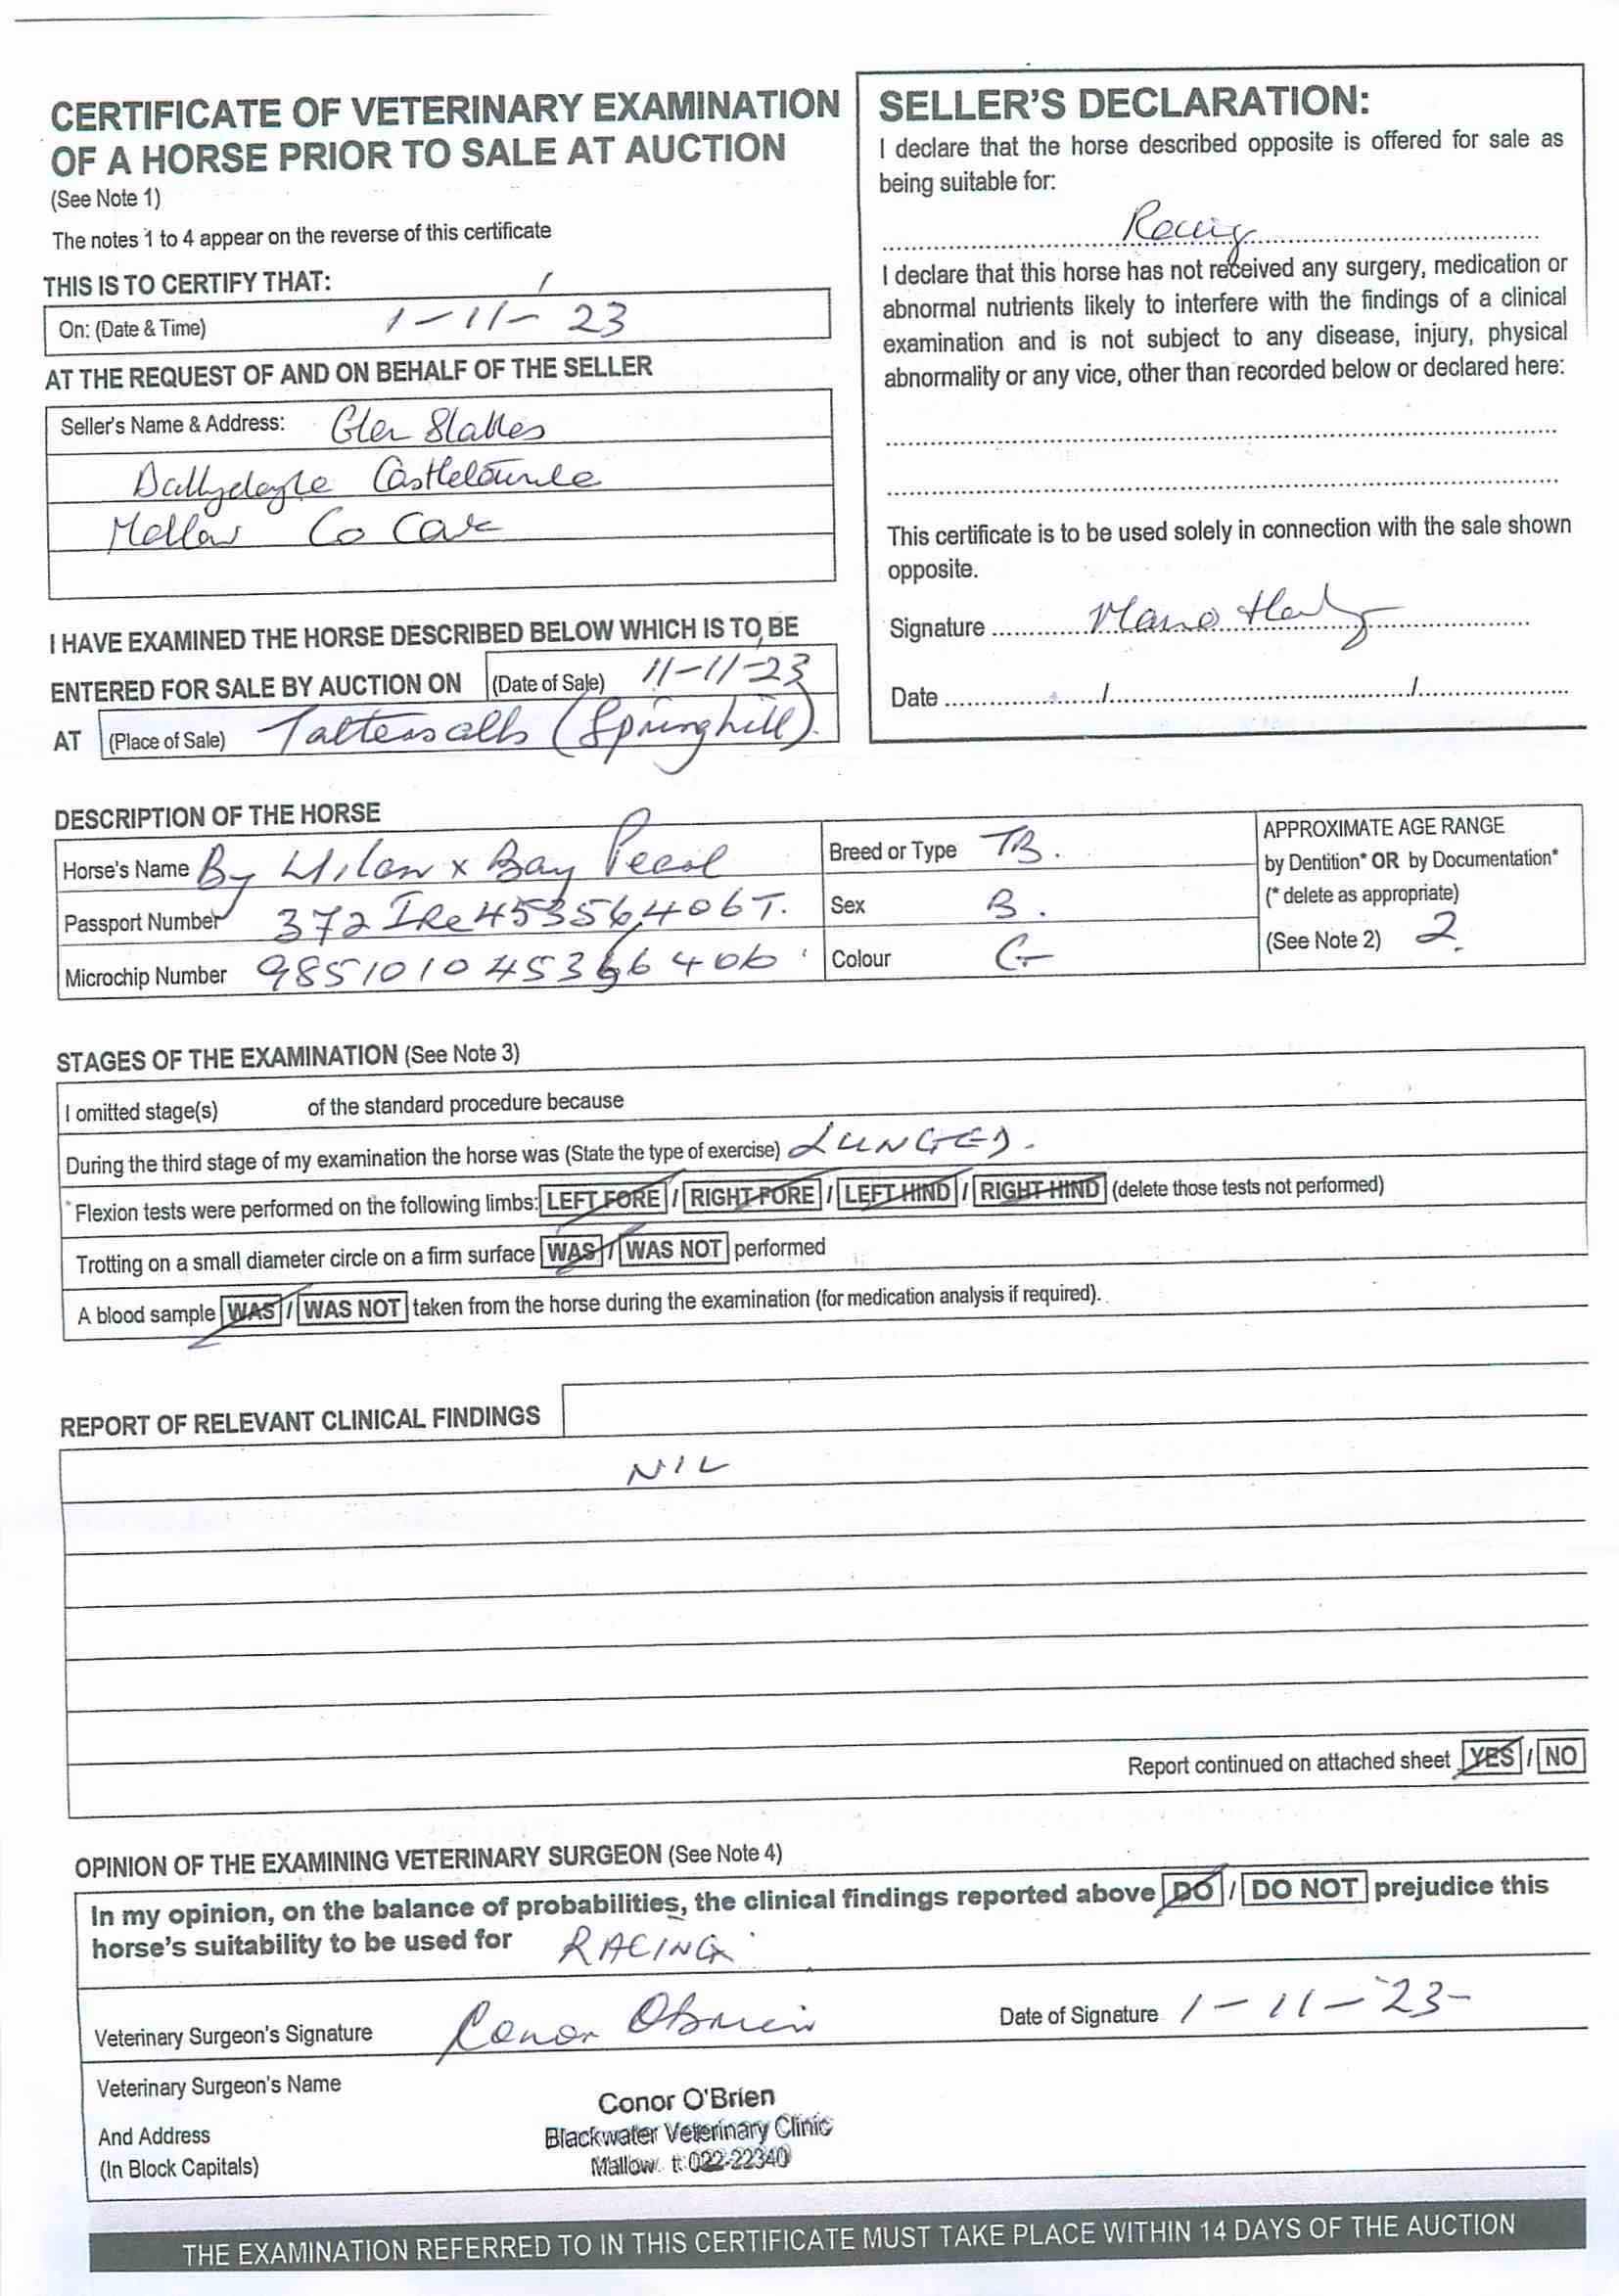 CERTIFICATE OF VETERINARY EXAMINATION
OF A HORSE PRIOR TO SALE AT AUCTION
(See Note 1)
The notes 1 to 4 appear on the reverse of this certificate
THIS IS TO CERTIFY THAT:
On: (Date & Time) 1-11-23
AT THE REQUEST OF AND ON BEHALF OF THE SELLER
Seller's Name & Address: Glen Stables
Castletownroche
Mallow Co Cork
I HAVE EXAMINED THE HORSE DESCRIBED BELOW WHICH IS TO BE
ENTERED FOR SALE BY AUCTION ON (Date of Sale) 11-11-23
AT (Place of Sale) Tattersalls (Springhill)
SELLER'S DECLARATION:
I declare that the horse described opposite is offered for sale as
being suitable for:
Racing
I declare that this horse has not received any surgery, medication or
abnormal nutrients likely to interfere with the findings of a clinical
examination and is not subject to any disease, injury, physical
abnormality or any vice, other than recorded below or declared here:
This certificate is to be used solely in connection with the sale shown
opposite.
Signature
Date / /
DESCRIPTION OF THE HORSE
Horse's Name By Milan x Bay Pearl
Breed or Type TB.
APPROXIMATE AGE RANGE
by Dentition* OR by Documentation*
(* delete as appropriate)
(See Note 2) 2.
Passport Number 372IRe45356406T.
Sex B.
Microchip Number
Colour G
STAGES OF THE EXAMINATION (See Note 3)
I omitted stage(s) of the standard procedure because
During the third stage of my examination the horse was (State the type of exercise) LUNGED.
*Flexion tests were performed on the following limbs: LEFT FORE / RIGHT FORE / LEFT HIND / RIGHT HIND (delete those tests not performed)
Trotting on a small diameter circle on a firm surface WAS / WAS NOT performed
A blood sample WAS / WAS NOT taken from the horse during the examination (for medication analysis if required).
REPORT OF RELEVANT CLINICAL FINDINGS
NIL
Report continued on attached sheet YES / NO
OPINION OF THE EXAMINING VETERINARY SURGEON (See Note 4)
In my opinion, on the balance of probabilities, the clinical findings reported above DO / DO NOT prejudice this
horse's suitability to be used for RACING
Veterinary Surgeon's Signature Conor OBrien
Date of Signature 1-11-23-
Veterinary Surgeon's Name
And Address
(In Block Capitals)
Conor O'Brien
Blackwater Veterinary Clinic
Mallow. t: 022-22340
THE EXAMINATION REFERRED TO IN THIS CERTIFICATE MUST TAKE PLACE WITHIN 14 DAYS OF THE AUCTION